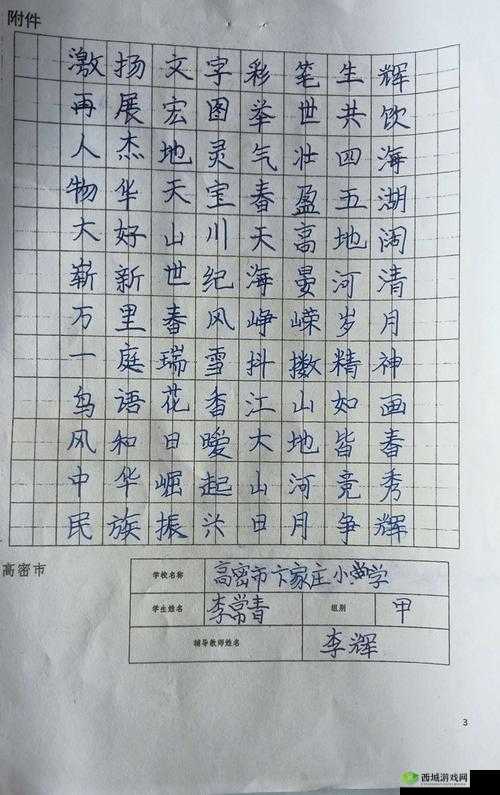 附件
激扬文字彩笔生辉
再展宏图举世共饮
人杰地灵气壮四海
物华天宝春盈五湖
大好山川天高地阔
崭新世纪海晏河清
万里春风峥嵘岁月
一庭瑞雪抖擞精神
鸟语花香江山如画
风和日暖大地皆春
中华崛起山河竞秀
民族振兴日月争辉
高密市
学校名称 高密市卞家庄小学
学生姓名 李常青 组别 甲
辅导教师姓名 李辉
3
西城游戏网